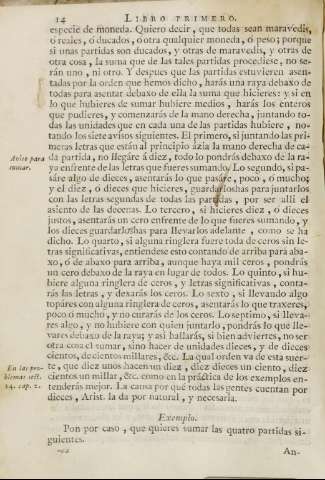 14 LIBRO PRIMERO.
especie de moneda. Quiero decir, que todas sean maravedis,
ó reales, ó ducados, ó otra qualquier moneda, ó peso; porque
si unas partidas son ducados, y otras de maravedis, y otras de
otra cosa, la suma que de las tales partidas procediese, no se-
rán uno, ni otro. Y despues que las partidas estuvieren asen-
tadas por la orden que hemos dicho, harás una raya debaxo de
todas para asentar debaxo de ella la suma que hicieres: y si en
lo que hubieres de sumar hubiere medios, harás los enteros
que pudieres, y comenzarás de la mano derecha, juntando to-
das las unidades que en cada una de las partidas hubiere, no-
tando los siete avisos siguientes. El primero, si juntando las pri-
meras letras que están al principio ázia la mano derecha de ca-
Aviso para
sumar.
da partida, no llegáre á diez, todo lo pondrás debaxo de la ra-
ya enfrente de las letras que fueres sumando. Lo segundo, si pa-
sáre algo de dieces, asentarás lo que pasáre, poco, ó mucho;
y el diez, ó dieces que hicieres, guardarloshas para juntarlos
con las letras segundas de todas las partidas, por ser alli el
asiento de las decenas. Lo tercero, si hicieres diez, ó dieces
justos, asentarás un cero enfrente de lo que fueres sumando, y
los dieces guardarloshas para llevarlos adelante, como se ha
dicho. Lo quarto, si alguna ringlera fuere toda de ceros sin le-
tras significativas, entiendese esto contando de arriba para aba-
xo, ó de abaxo para arriba, aunque haya mil ceros, pondrás
un cero debaxo de la raya en lugar de todos. Lo quinto, si hu-
biere alguna ringlera de ceros, y letras significativas, conta-
rás las letras, y dexarás los ceros. Lo sexto, si llevando algo
topáres con alguna ringlera de ceros, asentarás lo que traxeres,
poco ó mucho, y no curarás de los ceros. Lo septimo, si lleva-
res algo, y no hubiere con quien juntarlo, pondrás lo que lle-
vares debaxo de la raya; y asi hallarás, si bien adviertes, no ser
otra cosa el sumar, sino hacer de unidades dieces, y de dieces
cientos, de cientos millares, &c. La qual orden va de esta suer-
En las pro-
blemas sect.
14. cap. 2.
te, que diez unos hacen un diez, diez dieces un ciento, diez
cientos un millar, &c. como en la práctica de los exemplos en-
tenderás mejor. La causa por qué todas las gentes cuentan por
dieces, Arist. la da por natural, y necesaria.
Exemplo.
Pon por caso, que quieres sumar las quatro partidas si-
guientes.
An-